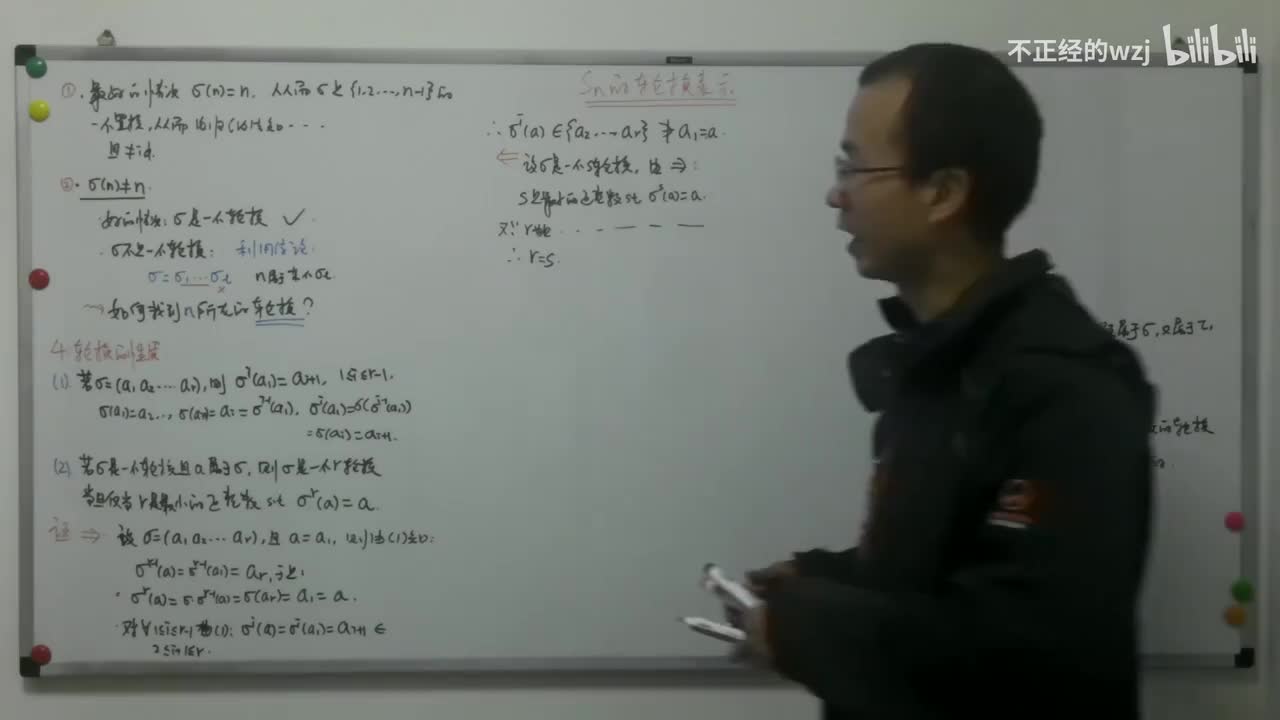 不正经的wzj bilibili
Sn的轮换表示
①. 最好的情况 σ(n)=n. 从而 σ是{1,2,…,n-1}的
一个置换,从而由归纳假设知···
且≠id.
②. σ(n)≠n.
好的情况: σ是一个轮换 ✓.
σ不是一个轮换: 利用结论:
σ=σ₁…σₜ n属于某个σₜ
⇝ 如何找到n所在的轮换?
4. 轮换的性质
(1) 若σ=(a₁ a₂ … aᵣ), 则 σⁱ(a₁)=aᵢ₊₁, 1≤i≤r-1.
σ(a₁)=a₂…, σ(aᵢ)= σⁱ⁻¹(a₁), σⁱ(a₁)=σ(σⁱ⁻¹(a₁))
=σ(aᵢ)=aᵢ₊₁.
(2) 若σ是一个轮换且a属于σ, 则σ是一个r轮换
当且仅当r是最小的正整数 s.t. σʳ(a)=a.
证 ⇒ 设σ=(a₁ a₂ … aᵣ), 且 a=a₁, 则由(1)知:
σʳ⁻¹(a)=σʳ⁻¹(a₁)=aᵣ, 于是,
σʳ(a)=σ·σʳ⁻¹(a)=σ(aᵣ)=a₁=a.
对∀1≤i≤r-1 由(1): σⁱ(a)=σⁱ(a₁)=aᵢ₊₁ ∈
2≤i+1≤r.
∴ σⁱ(a)∈{a₂…,aᵣ} ∌ a₁=a.
⇐ 设σ是一个s轮换, 由⇒:
s是最小的正整数 s.t. σˢ(a)=a.
又∵ r也
∴ r=s.
属于σ,又属于τ,
的轮换